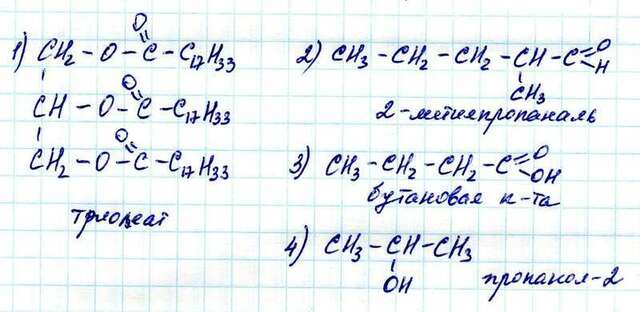 1) CH₂ – O – C(=O) – C₁₇H₃₃
CH – O – C(=O) – C₁₇H₃₃
CH₂ – O – C(=O) – C₁₇H₃₃
триолеат
2) CH₃ – CH₂ – CH₂ – CH – C(=O)H
CH₃
2-метилпропаналь
3) CH₃ – CH₂ – CH₂ – C(=O)OH
бутановая к-та
4) CH₃ – CH – CH₃
OH
пропанол-2